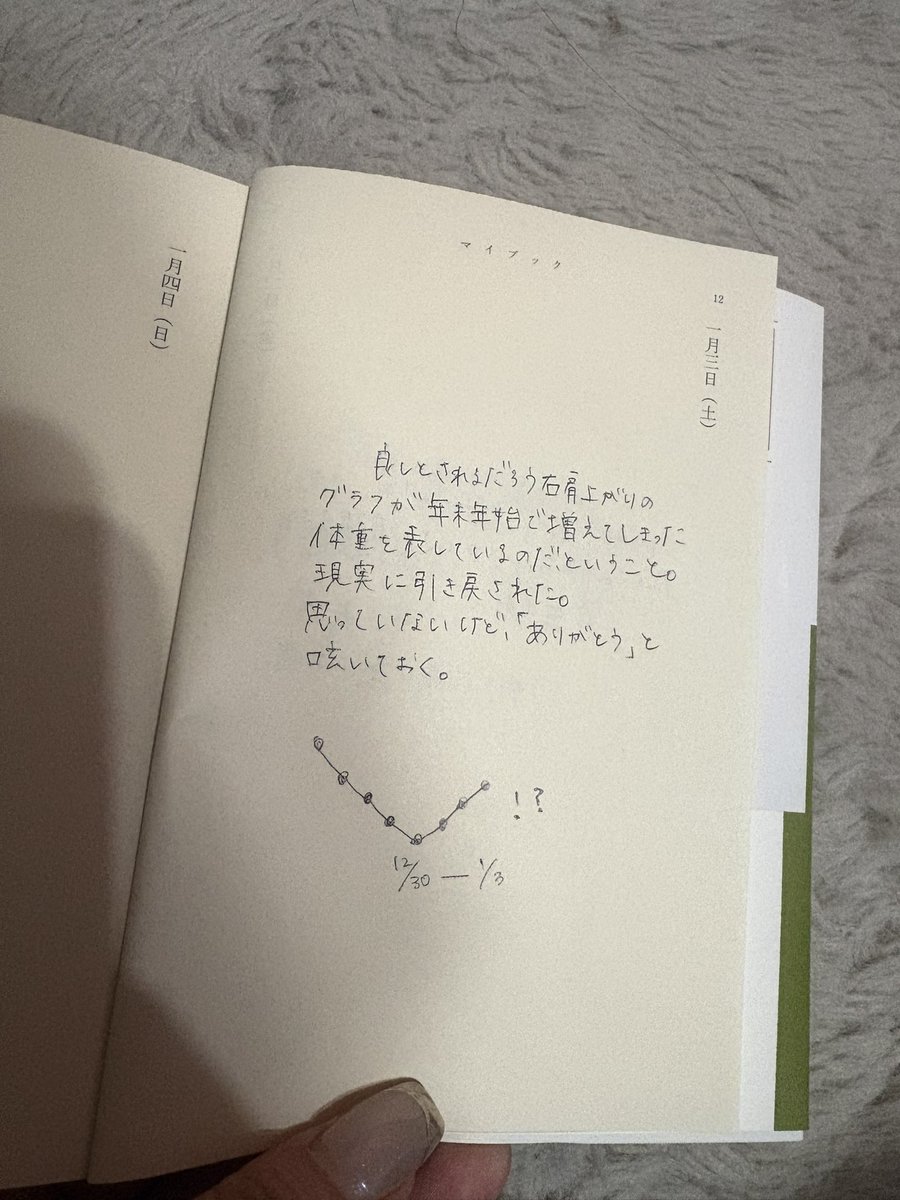 一月四日（日）
マイブック
12
一月三日（土）
良しとされるだろう右肩上がりの
グラフが年末年始で増えてしまった
体重を表しているのだということ。
現実に引き戻された。
思っていないけど、「ありがとう」と
呟いておく。
!?
12/30 — 1/3